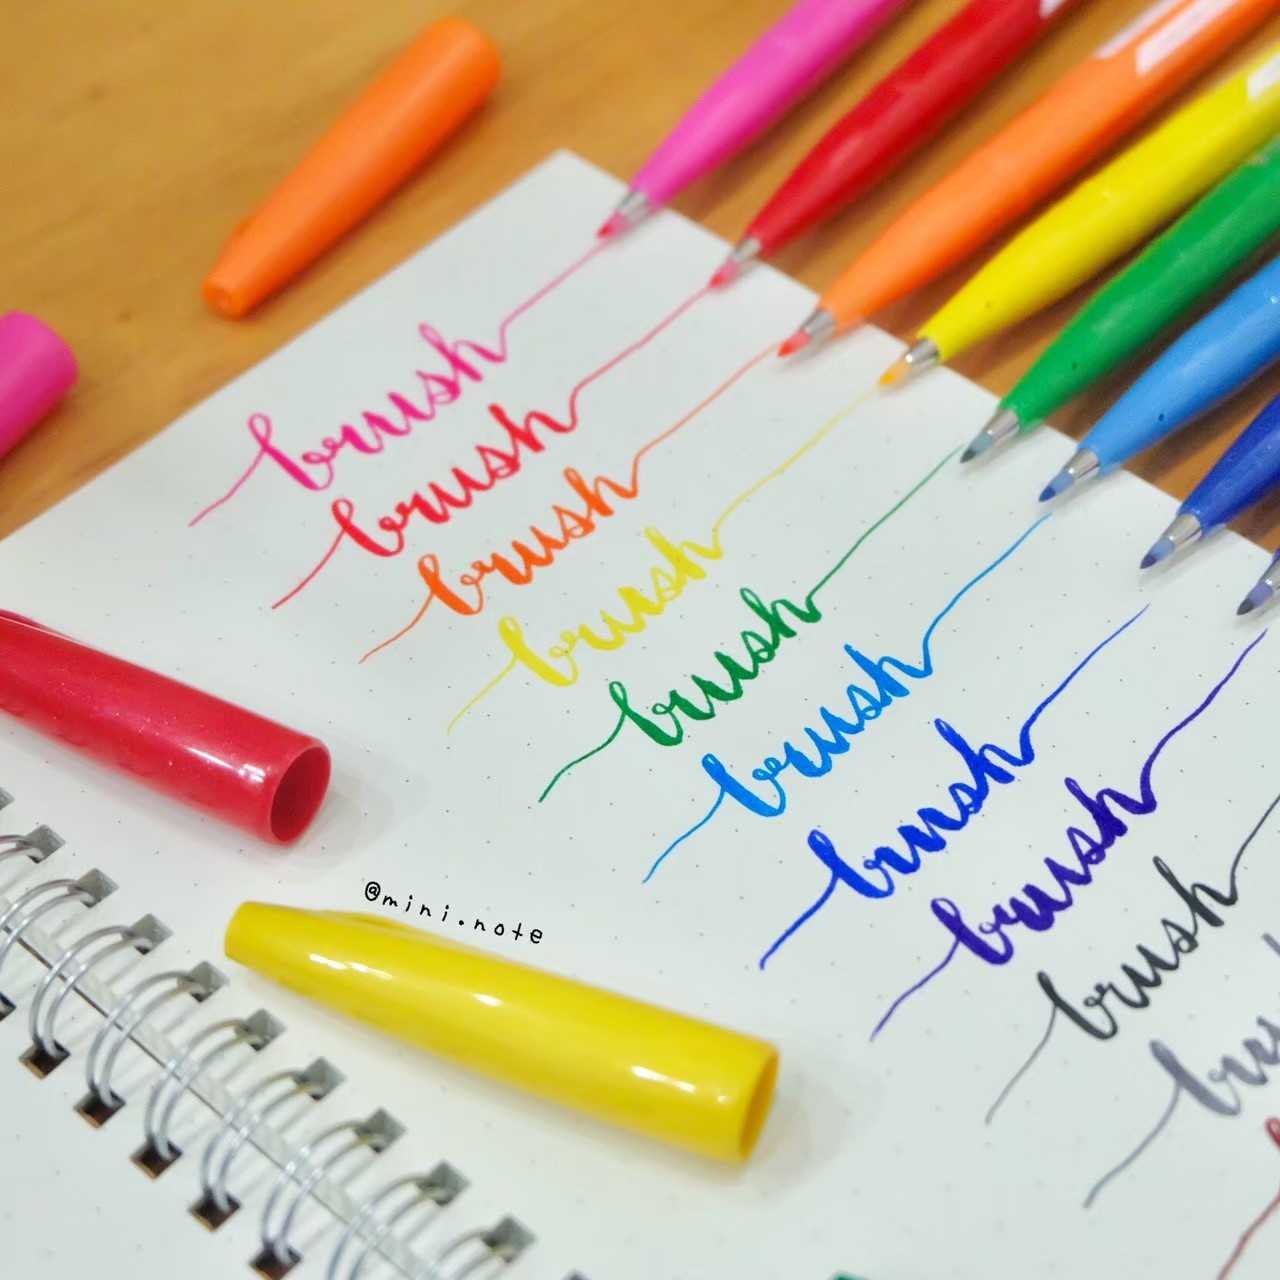 brush
brush
brush
brush
brush
brush
brush
brush
brush
@mini.note